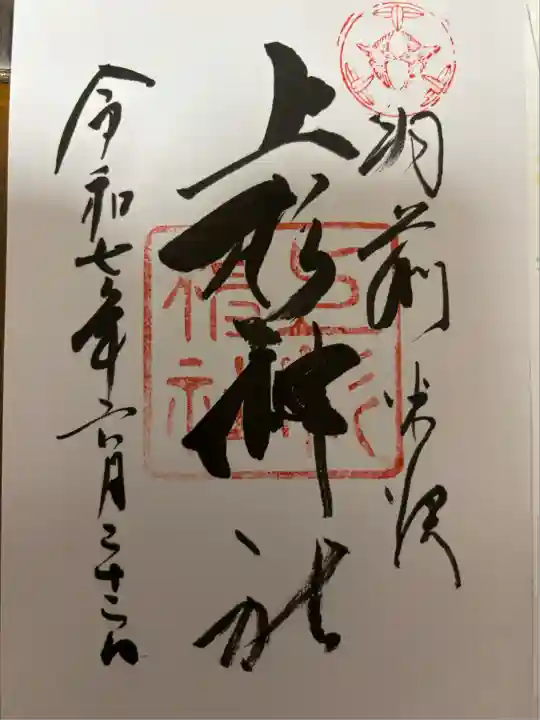 羽前米澤
上杉神社
令和七年六月二十二日